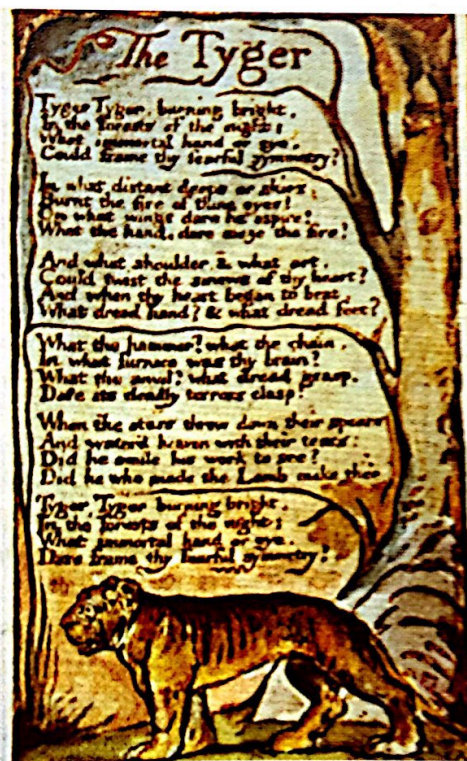 The Tyger
Tyger Tyger, burning bright,
In the forests of the night;
What immortal hand or eye,
Could frame thy fearful symmetry?
In what distant deeps or skies,
Burnt the fire of thine eyes?
On what wings dare he aspire?
What the hand, dare sieze the fire?
And what shoulder, & what art,
Could twist the sinews of thy heart?
And when thy heart began to beat,
What dread hand? & what dread feet?
What the hammer? what the chain,
In what furnace was thy brain?
What the anvil? what dread grasp,
Dare its deadly terrors clasp!
When the stars threw down their spears
And water'd heaven with their tears:
Did he smile his work to see?
Did he who made the Lamb make thee
Tyger, Tyger burning bright,
In the forests of the night:
What immortal hand or eye,
Dare frame thy fearful symmetry?